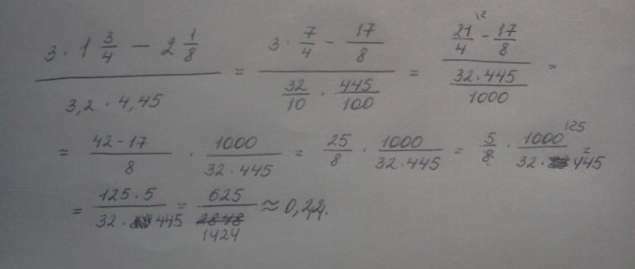 (3 · 1 3/4 − 2 1/8) / (3,2 · 4,45) = (3 · 7/4 − 17/8) / (32/10 · 445/100) = (21/4 − 17/8) / (32·445/1000) =
= (42−17)/8 · 1000/(32·445) = 25/8 · 1000/(32·445) = 5/8 · 1000 125/(32·445) =
= (125·5)/(32·445) = 625/1424 ≈ 0,22.